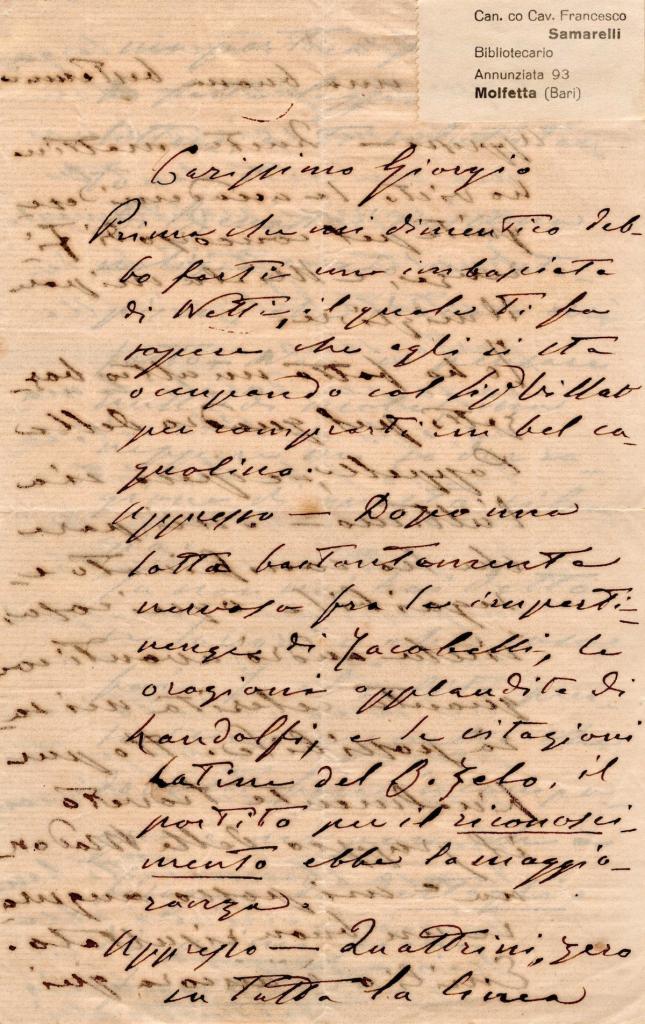 Can. co Cav. Francesco
Samarelli
Bibliotecario
Annunziata 93
Molfetta (Bari)
Carissimo Giorgio
Prima che mi dimentico deb-
bo farti una imbasciata
di Netti, il quale ti fa
sapere che egli si sta
occupando col Sigr
per comprarti un bel ca-
gnolino.
Appresso — Dopo una
lotta bastantemente
nervosa fra le imperti-
nenze di Jacobelli, le
orazioni applaudite di
Landolfi, e le citazioni
Latine del B. Zelo, il
partito per il riconosci-
mento ebbe la maggio-
ranza.
Appresso — Quattrini, zero
in tutta la linea